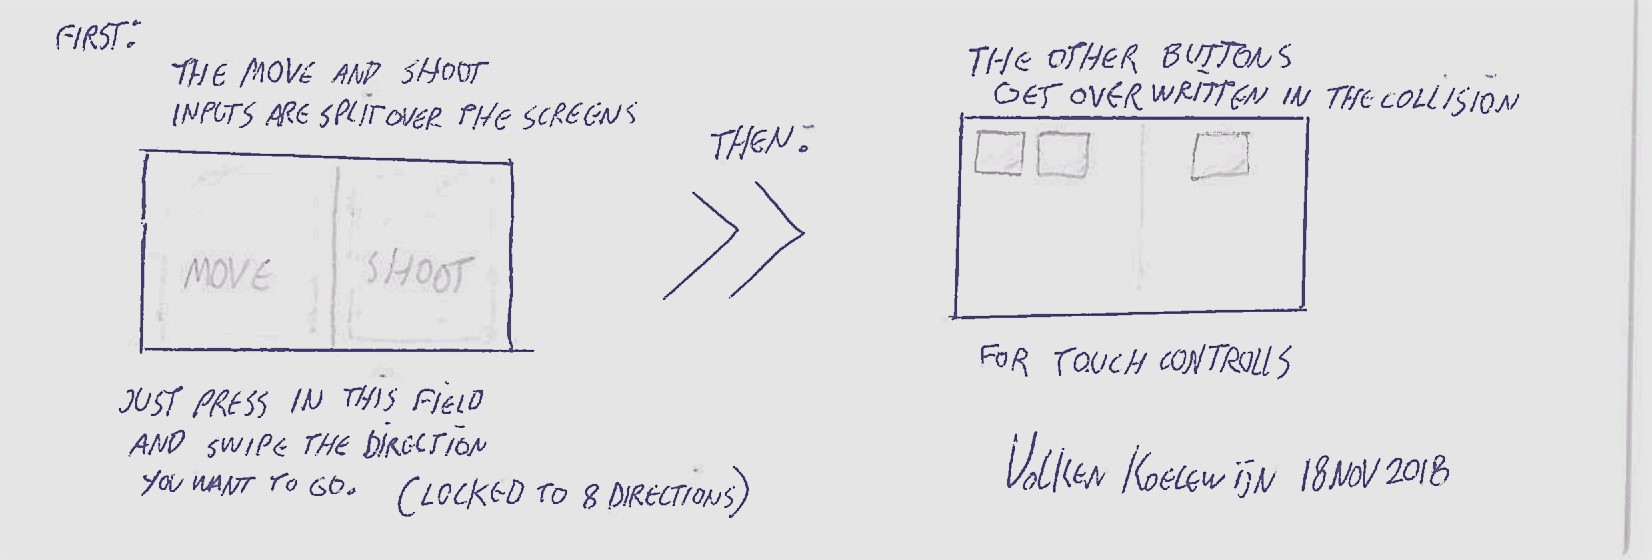 FIRST:
THE MOVE AND SHOOT
INPUTS ARE SPLIT OVER THE SCREENS
MOVE
SHOOT
JUST PRESS IN THIS FIELD
AND SWIPE THE DIRECTION
YOU WANT TO GO. (LOCKED TO 8 DIRECTIONS)
THEN:
THE OTHER BUTTONS
GET OVERWRITTEN IN THE COLLISION
FOR TOUCH CONTROLLS
VOLKEN KOELEWIJN 18 NOV 2018